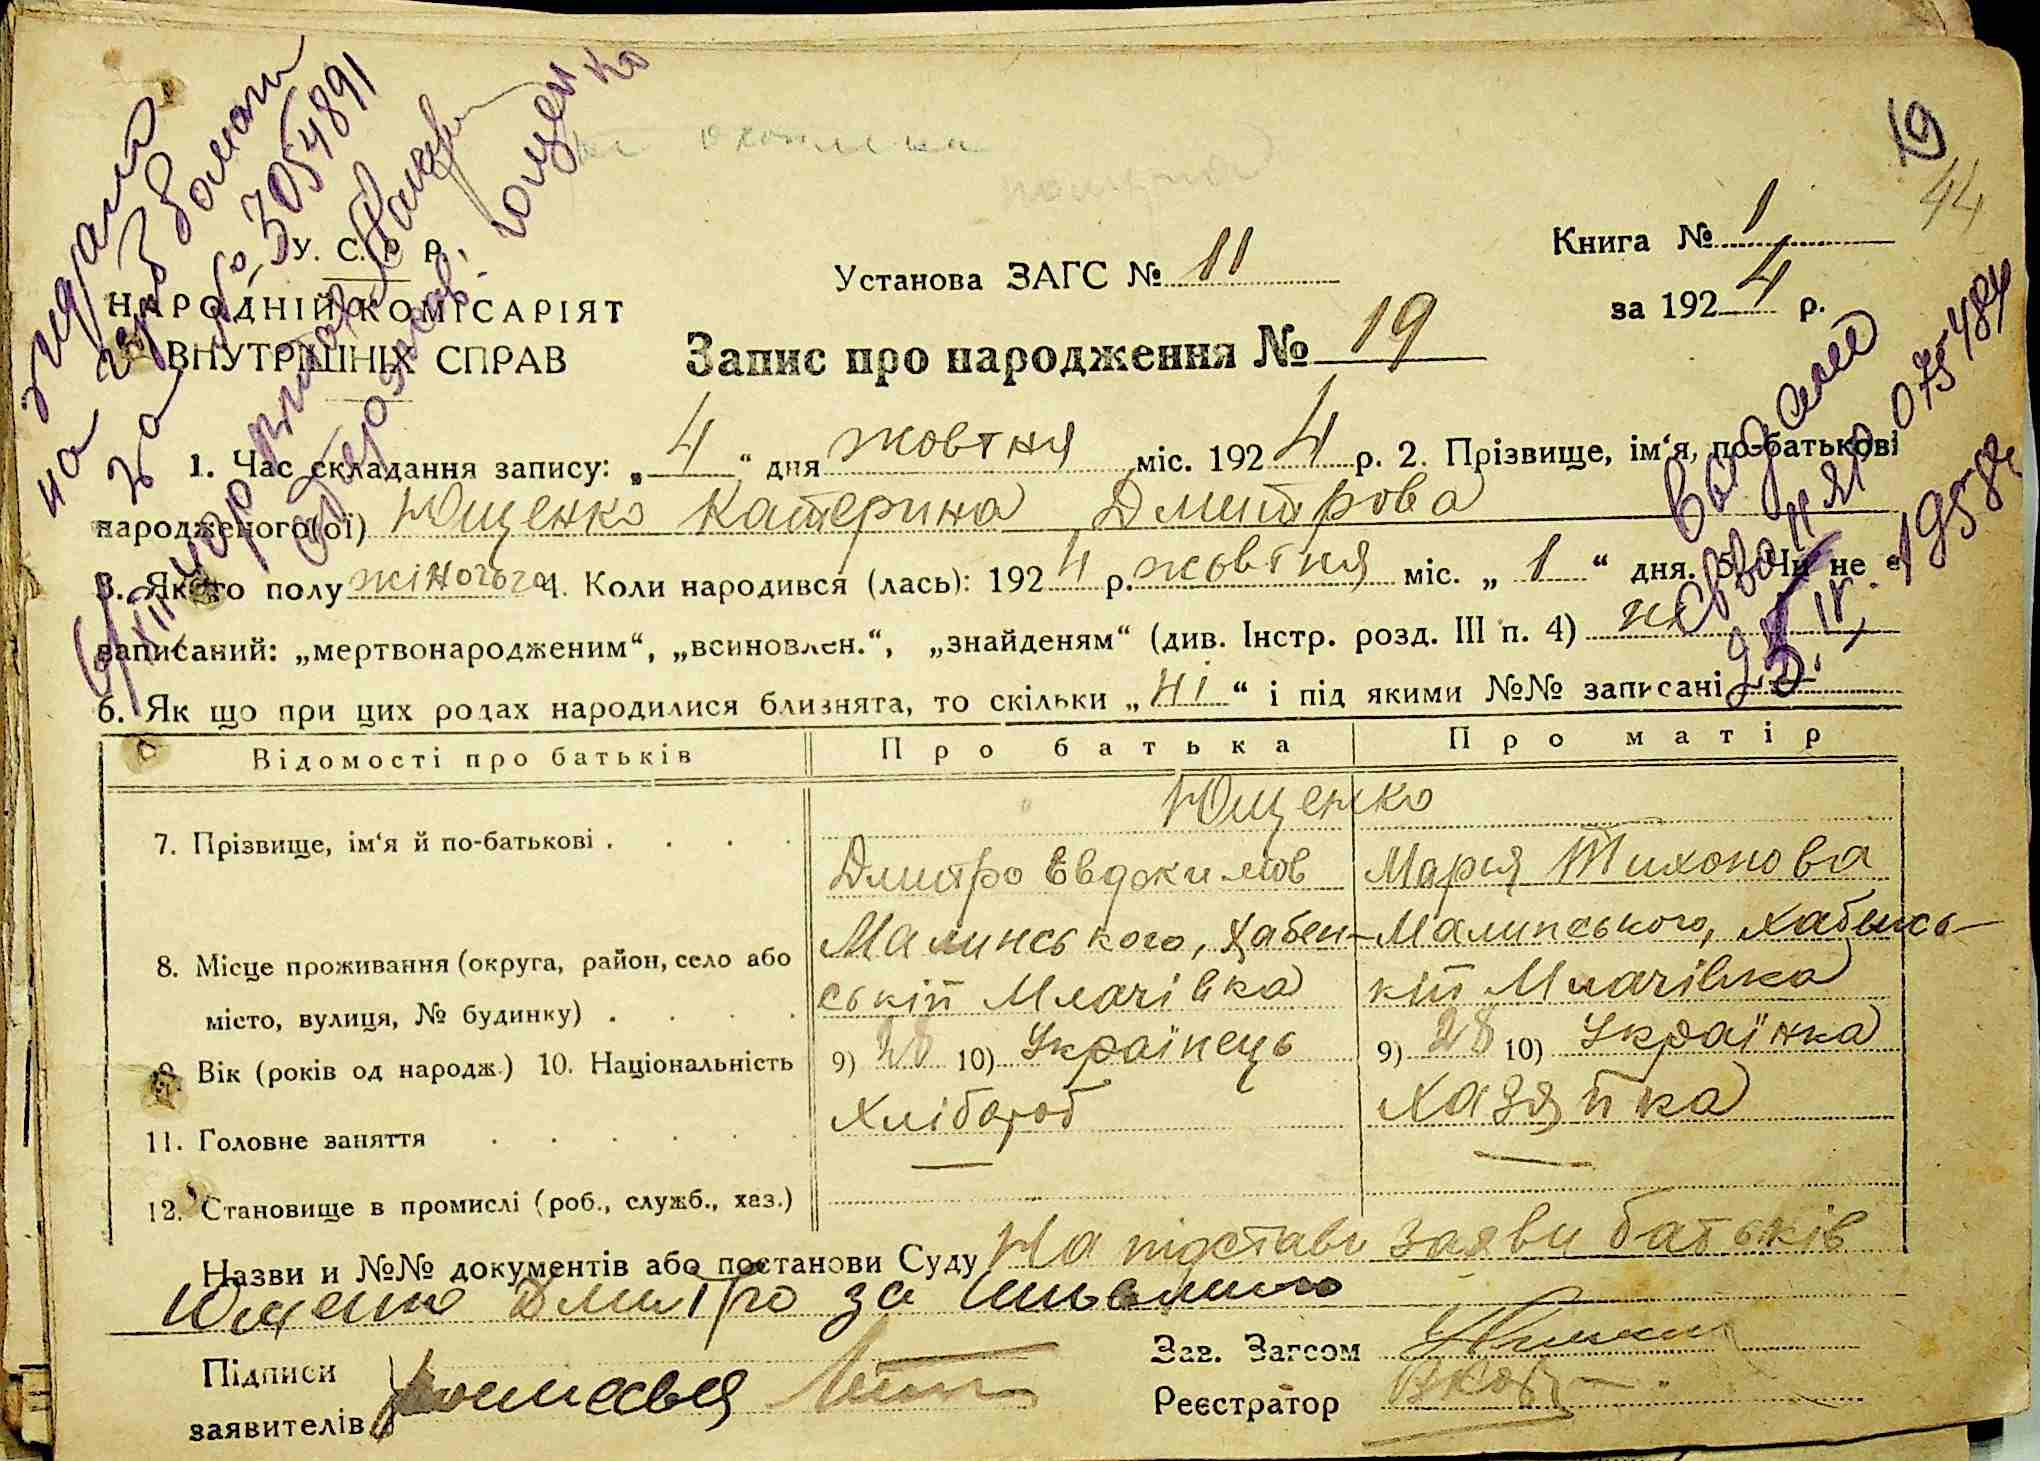 19
44
У. С. Р. Р.
НАРОДНІЙ КОМІСАРІЯТ
ВНУТРІШНІХ СПРАВ
Установа ЗАГС № 11
Книга № 1
за 1924 р.
Запис про народження № 19
1. Час складання запису: „4“ дня жовтня міс. 1924 р. 2. Прізвище, ім‘я, по-батькові
народженого(ої) Ющенко Катерина Дмитрова
3. Якого полу жіночого 4. Коли народився (лась): 1924 р. жовтня міс. „1“ дня. 5. Чи не є
записаний: „мертвонародженим“, „всиновлен.“, „знайденям“ (див. Інстр. розд. III п. 4) ні
6. Як що при цих родах народилися близнята, то скільки „ні“ і під якими №№ записані
Відомості про батьків Про батька Про матір
Ющенко
7. Прізвище, ім‘я й по-батькові . . . .
Дмитро Евдокимов Мария Тихонова
8. Місце проживання (округа, район, село або Малинського, Хабен- Малинського, Хабенсь-
місто, вулиця, № будинку) . . . . ській Млачівка кій Млачівка
9. Вік (років од народж.) 10. Національність 9) 28 10) Українець 9) 28 10) Українка
11. Головне заняття . . . . . . Хлібороб Хазяйка
12. Становище в промислі (роб., служб., хаз.)
Назви и №№ документів або постанови Суду На підставі заяви батьків
Ющенко Дмитро за
Підписи
заявителів
Зав. Загсом
Реєстратор
№ 3054891
Ющенко
выдано
075484
1958